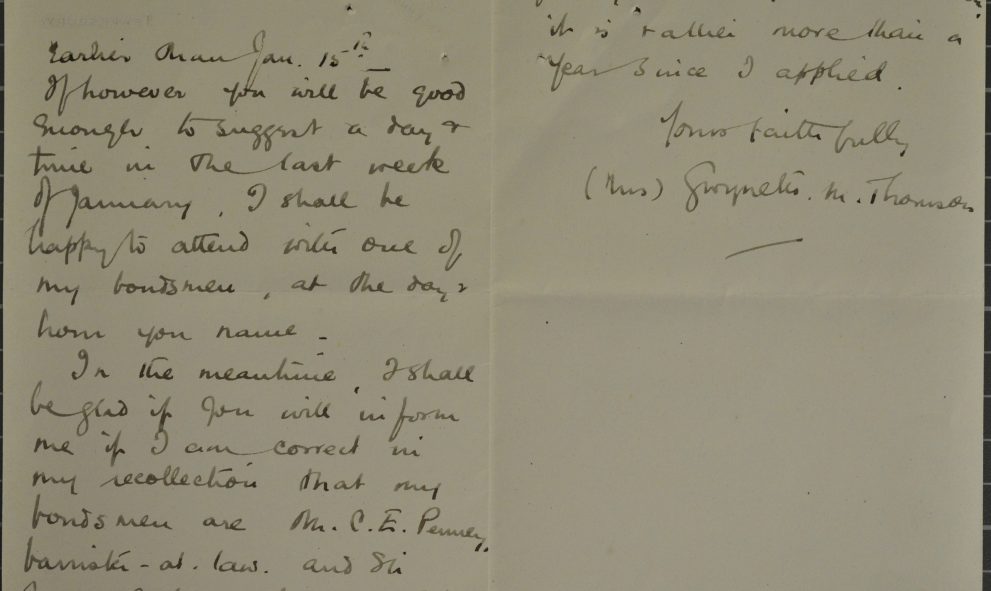 earlier than Jan. 15th
If however you will be good
enough to suggest a day &
time in the last week
of January, I shall be
happy to attend with one of
my bondsmen, at the day &
hour you name -
In the meantime, I shall
be glad if you will inform
me if I am correct in
my recollection that my
bondsmen are Mr. C. E. Penney,
barrister-at-law. and Sir
it is rather more than a
year since I applied.
Yours faithfully
(Mrs) Gwyneth. M. Thomson